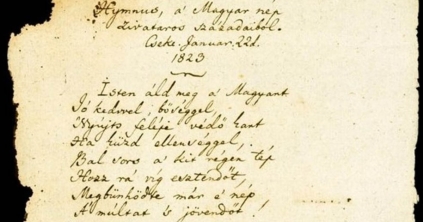 Hymnus, a' Magyar nép
zivataros századaiból.
Cseke. Januar. 22d.
1823
Isten áld meg a Magyart
Jó kedvvel, bőséggel,
Nyújts feléje védő kart
Ha küzd ellenséggel,
Bal sors a kit régen tép
Hozz rá víg esztendőt,
Megbűnhödte már e' nép
A' multat 's jövendőt!